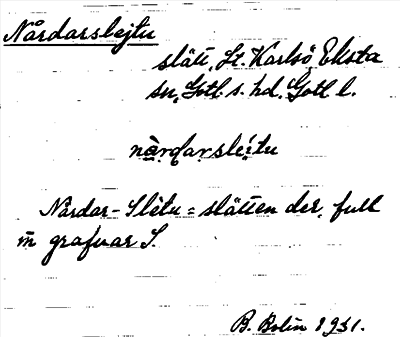 Nårdarslejtu
slätt, St. Karlsö, Eksta
sn, Gotl. s. hd. Gotl l.
nàrdarsleitu
Nårdar-Slètu = slätten der, full
m grafvar S.
B. Bolin 1931.